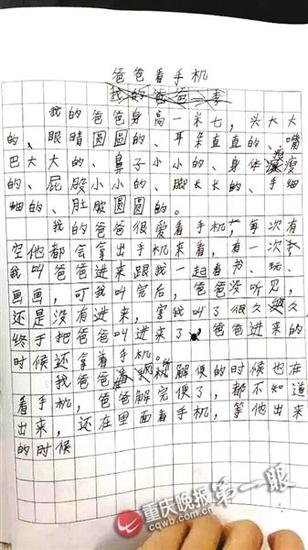 爸爸看手机
我的爸爸身高一米七,头大大
的、眼睛圆圆的、耳朵直直的、嘴
巴大大的、鼻子小小的、身体瘦瘦
的、屁股小小的、脚长长的、手细
细的、肚肚圆圆的。
我的爸爸很爱看手机,每次有
空他都会拿出手机来看,有一次
我叫爸爸进来跟我一起看书、玩、
画画,可我叫完后,爸爸没听见,
还是没有进来,害我叫了很久
终于把爸爸叫进来了,爸爸进来的
时候还拿着手机。
我爸爸解便的时候也在
看手机,爸爸解完便了,都不知道
出来,还在里面看手机,等他出来
的时候
重庆晚报 第一眼
www.cqwb.com.cn